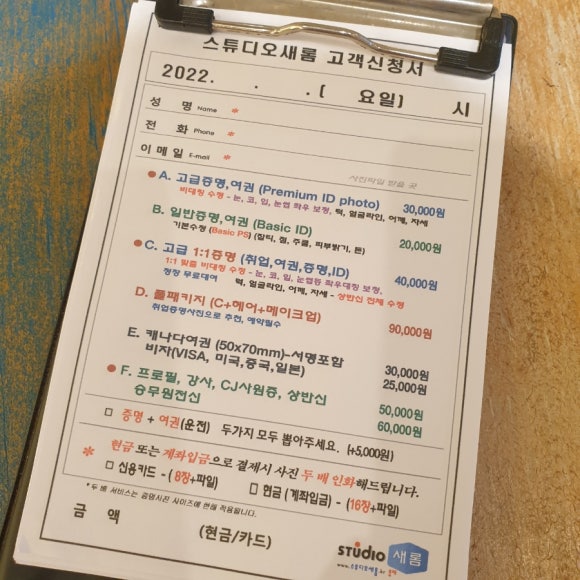 스튜디오새롬 고객신청서
2022. . .( 요일) 시
성 명 Name *
전 화 Phone *
이메일 E-mail * 사진파일 받을 곳
A. 고급증명,여권 (Premium ID photo) 30,000원
비대칭 수정 - 눈, 코, 입, 눈썹 좌우 보정, 턱, 얼굴라인, 어깨, 자세
B. 일반증명,여권 (Basic ID) 20,000원
기본수정 (Basic PS) (잡티, 점, 주름, 피부밝기, 톤)
C. 고급 1:1증명 (취업,여권,증명,ID) 40,000원
1:1 맞춤 비대칭 수정 - 눈, 코, 입, 눈썹등 좌우대칭 보정,
정장 무료대여 턱, 얼굴라인, 어깨, 자세 - 상반신 전체 수정
D. 풀패키지 (C+헤어+메이크업) 90,000원
취업증명사진으로 추천, 예약필수
E. 캐나다여권 (50x70mm)-서명포함 30,000원
비자(VISA, 미국,중국,일본) 25,000원
F. 프로필, 강사, CJ사원증, 상반신 50,000원
승무원전신 60,000원
□ 증명 + 여권(운전) 두가지 모두 뽑아주세요. (+5,000원)
* 현금 또는 계좌입금으로 결제시 사진 두 배 인화해드립니다.
□ 신용카드 - (8장+파일) □ 현금 (계좌입금) - (16장+파일)
*두 배 서비스는 증명사진 사이즈에 한해 적용됩니다.
금 액 (현금/카드)
STUDIO 새롬
www.스튜디오새롬.kr